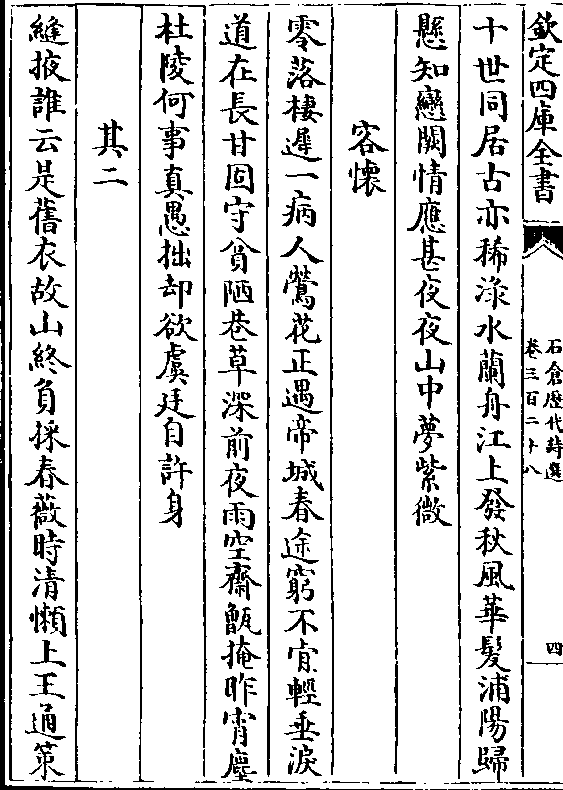 欽定四庫全書
石倉歷代詩選
卷三百二十八
四
十世同居古亦稀淥水蘭舟江上發秋風華髮浦陽歸
懸知戀闕情應甚夜夜山中夢紫微
容懷
零落棲遲一病人鶯花正遇帝城春途窮不肎輕垂淚
道在長甘固守貧陋巷草深前夜雨空齋甑掩昨宵塵
杜陵何事真愚拙却欲虞廷自許身
其二
縫掖誰云是舊衣故山終負採春薇時清懶上王通策